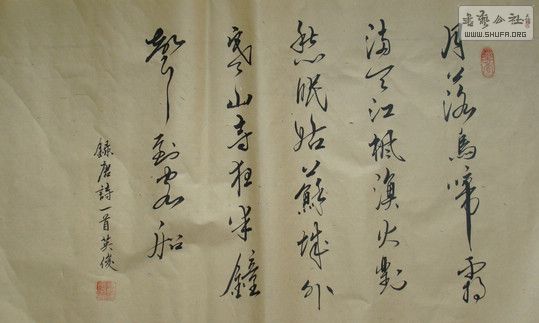 月落烏啼霜
滿天江楓漁火對
愁眠姑蘇城外
寒山寺夜半鐘
聲到客船
錄唐詩一首英俊
書藝公社
WWW.SHUFA.ORG